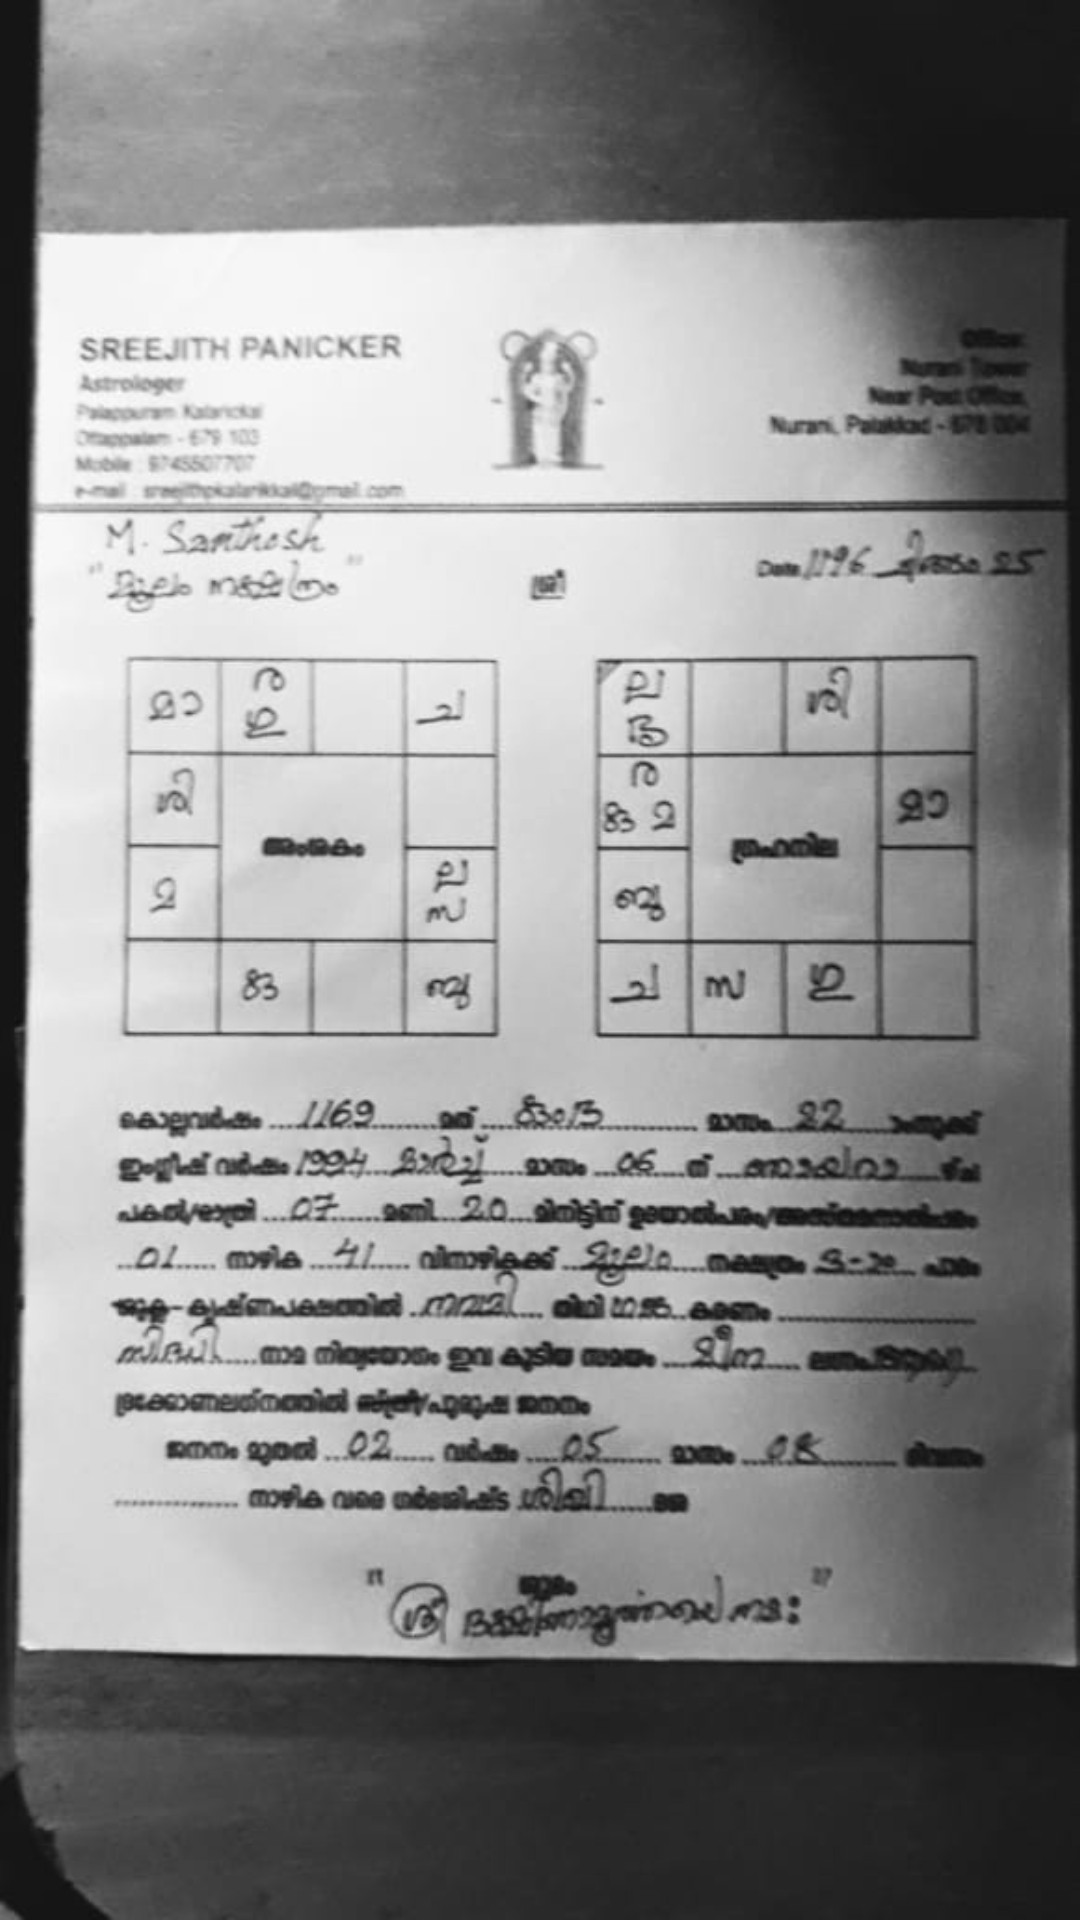 SREEJITH PANICKER
Astrologer
Palappuram Kalarickal
Ottappalam - 679 103
Mobile : 9745507707
e-mail : sreejithpkalarikkal@gmail.com
Office:
Nurani Tower
Near Post Office,
Nurani, Palakkad - 678 004
M. Santhosh
"മൂലം നക്ഷത്രം"
ശ്രീ
Date 1196 ചിങ്ങം 25
മാ ര ഗു ച
ശി
അംശകം
മ ല സ
ശു ബു
ല ശു ശി
ര കു മ
ഗ്രഹനില
മാ
ബു
ച സ ഗു
കൊല്ലവർഷം 1169 മത് കുംഭ മാസം 22 ാംതീയതിക്ക്
ഇംഗ്ലീഷ് വർഷം 1994 മാർച്ച് മാസം 06 ന് ഞായറാ ഴ്ച
പകൽ/രാത്രി 07 മണി 20 മിനിട്ടിന് ഉദയാൽപരം/അസ്തമനാൽപരം
01 നാഴിക 41 വിനാഴികക്ക് മൂലം നക്ഷത്രം പാദം
ശുക്ല - കൃഷ്ണപക്ഷത്തിൽ നവമി തിഥി കരണം
സിദ്ധി നാമ നിത്യയോഗം ഇവ കൂടിയ സമയം മീന
ദ്രേക്കോണലഗ്നത്തിൽ സ്ത്രീ/പുരുഷ ജനനം
ജനനം മുതൽ 02 വർഷം 05 മാസം 08 ദിവസം
നാഴിക വരെ ഗർഭശിഷ്ട ശിഖി ദശ
ശുഭം
"ശ്രീ ദക്ഷിണാമൂർത്തയെ നമഃ"